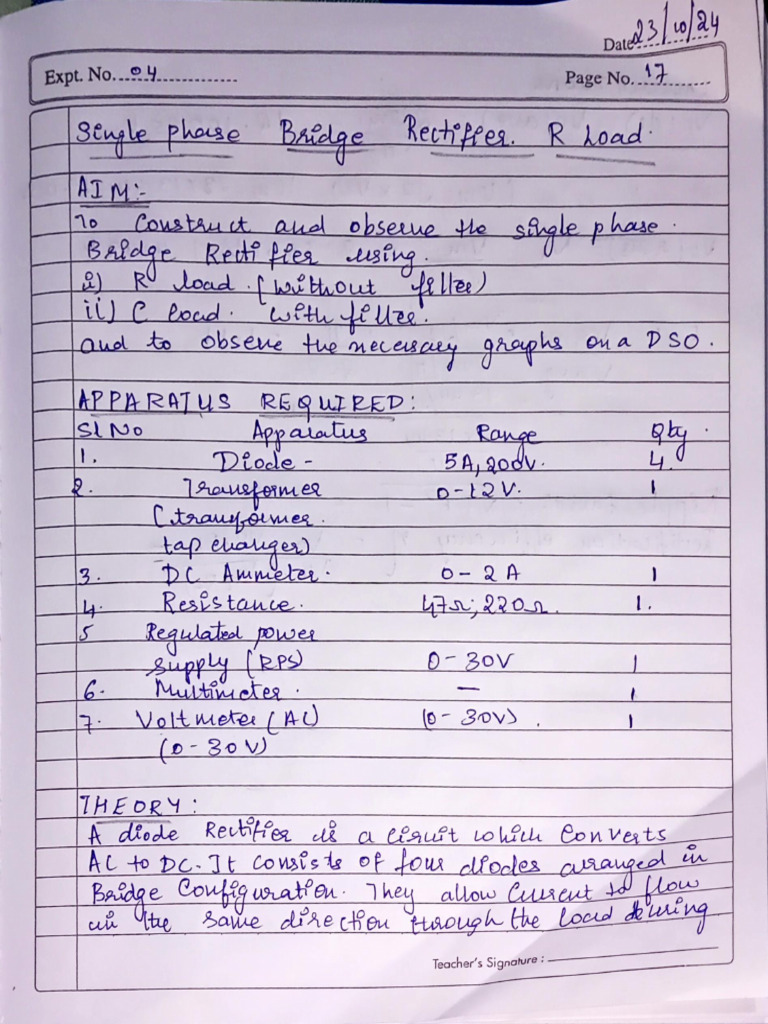 Date 23/10/24
Expt. No. 04
Page No. 17
Single phase Bridge Rectifier. R Load.
AIM:-
To construct and observe the single phase.
Bridge Rectifier using.
i) R load. (without filter)
ii) C load. with filter.
and to observe the necessary graphs on a DSO.
APPARATUS REQUIRED:
Sl No Apparatus Range Qty.
1. Diode - 5A, 200V. 4.
2. Transformer 0-12V. 1
(transformer.
tap changer)
3. DC Ammeter. 0-2A 1
4. Resistance. 47Ω; 220Ω. 1.
5 Regulated power
supply (RPS) 0-30V 1
6. Multimeter. — 1
7. Voltmeter (AC) (0-30V). 1
(0-30V)
THEORY:
A diode Rectifier is a circuit which converts
AC to DC. It consists of four diodes arranged in
Bridge Configuration. They allow current to flow
in the same direction through the load during
Teacher's Signature :